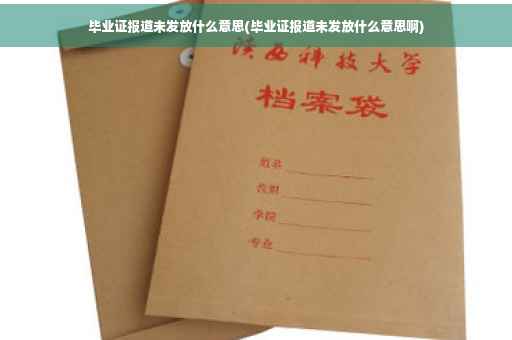 毕业证报道未发放什么意思(毕业证报道未发放什么意思啊)
陕西科技大学
档案袋
姓名
学院
专业